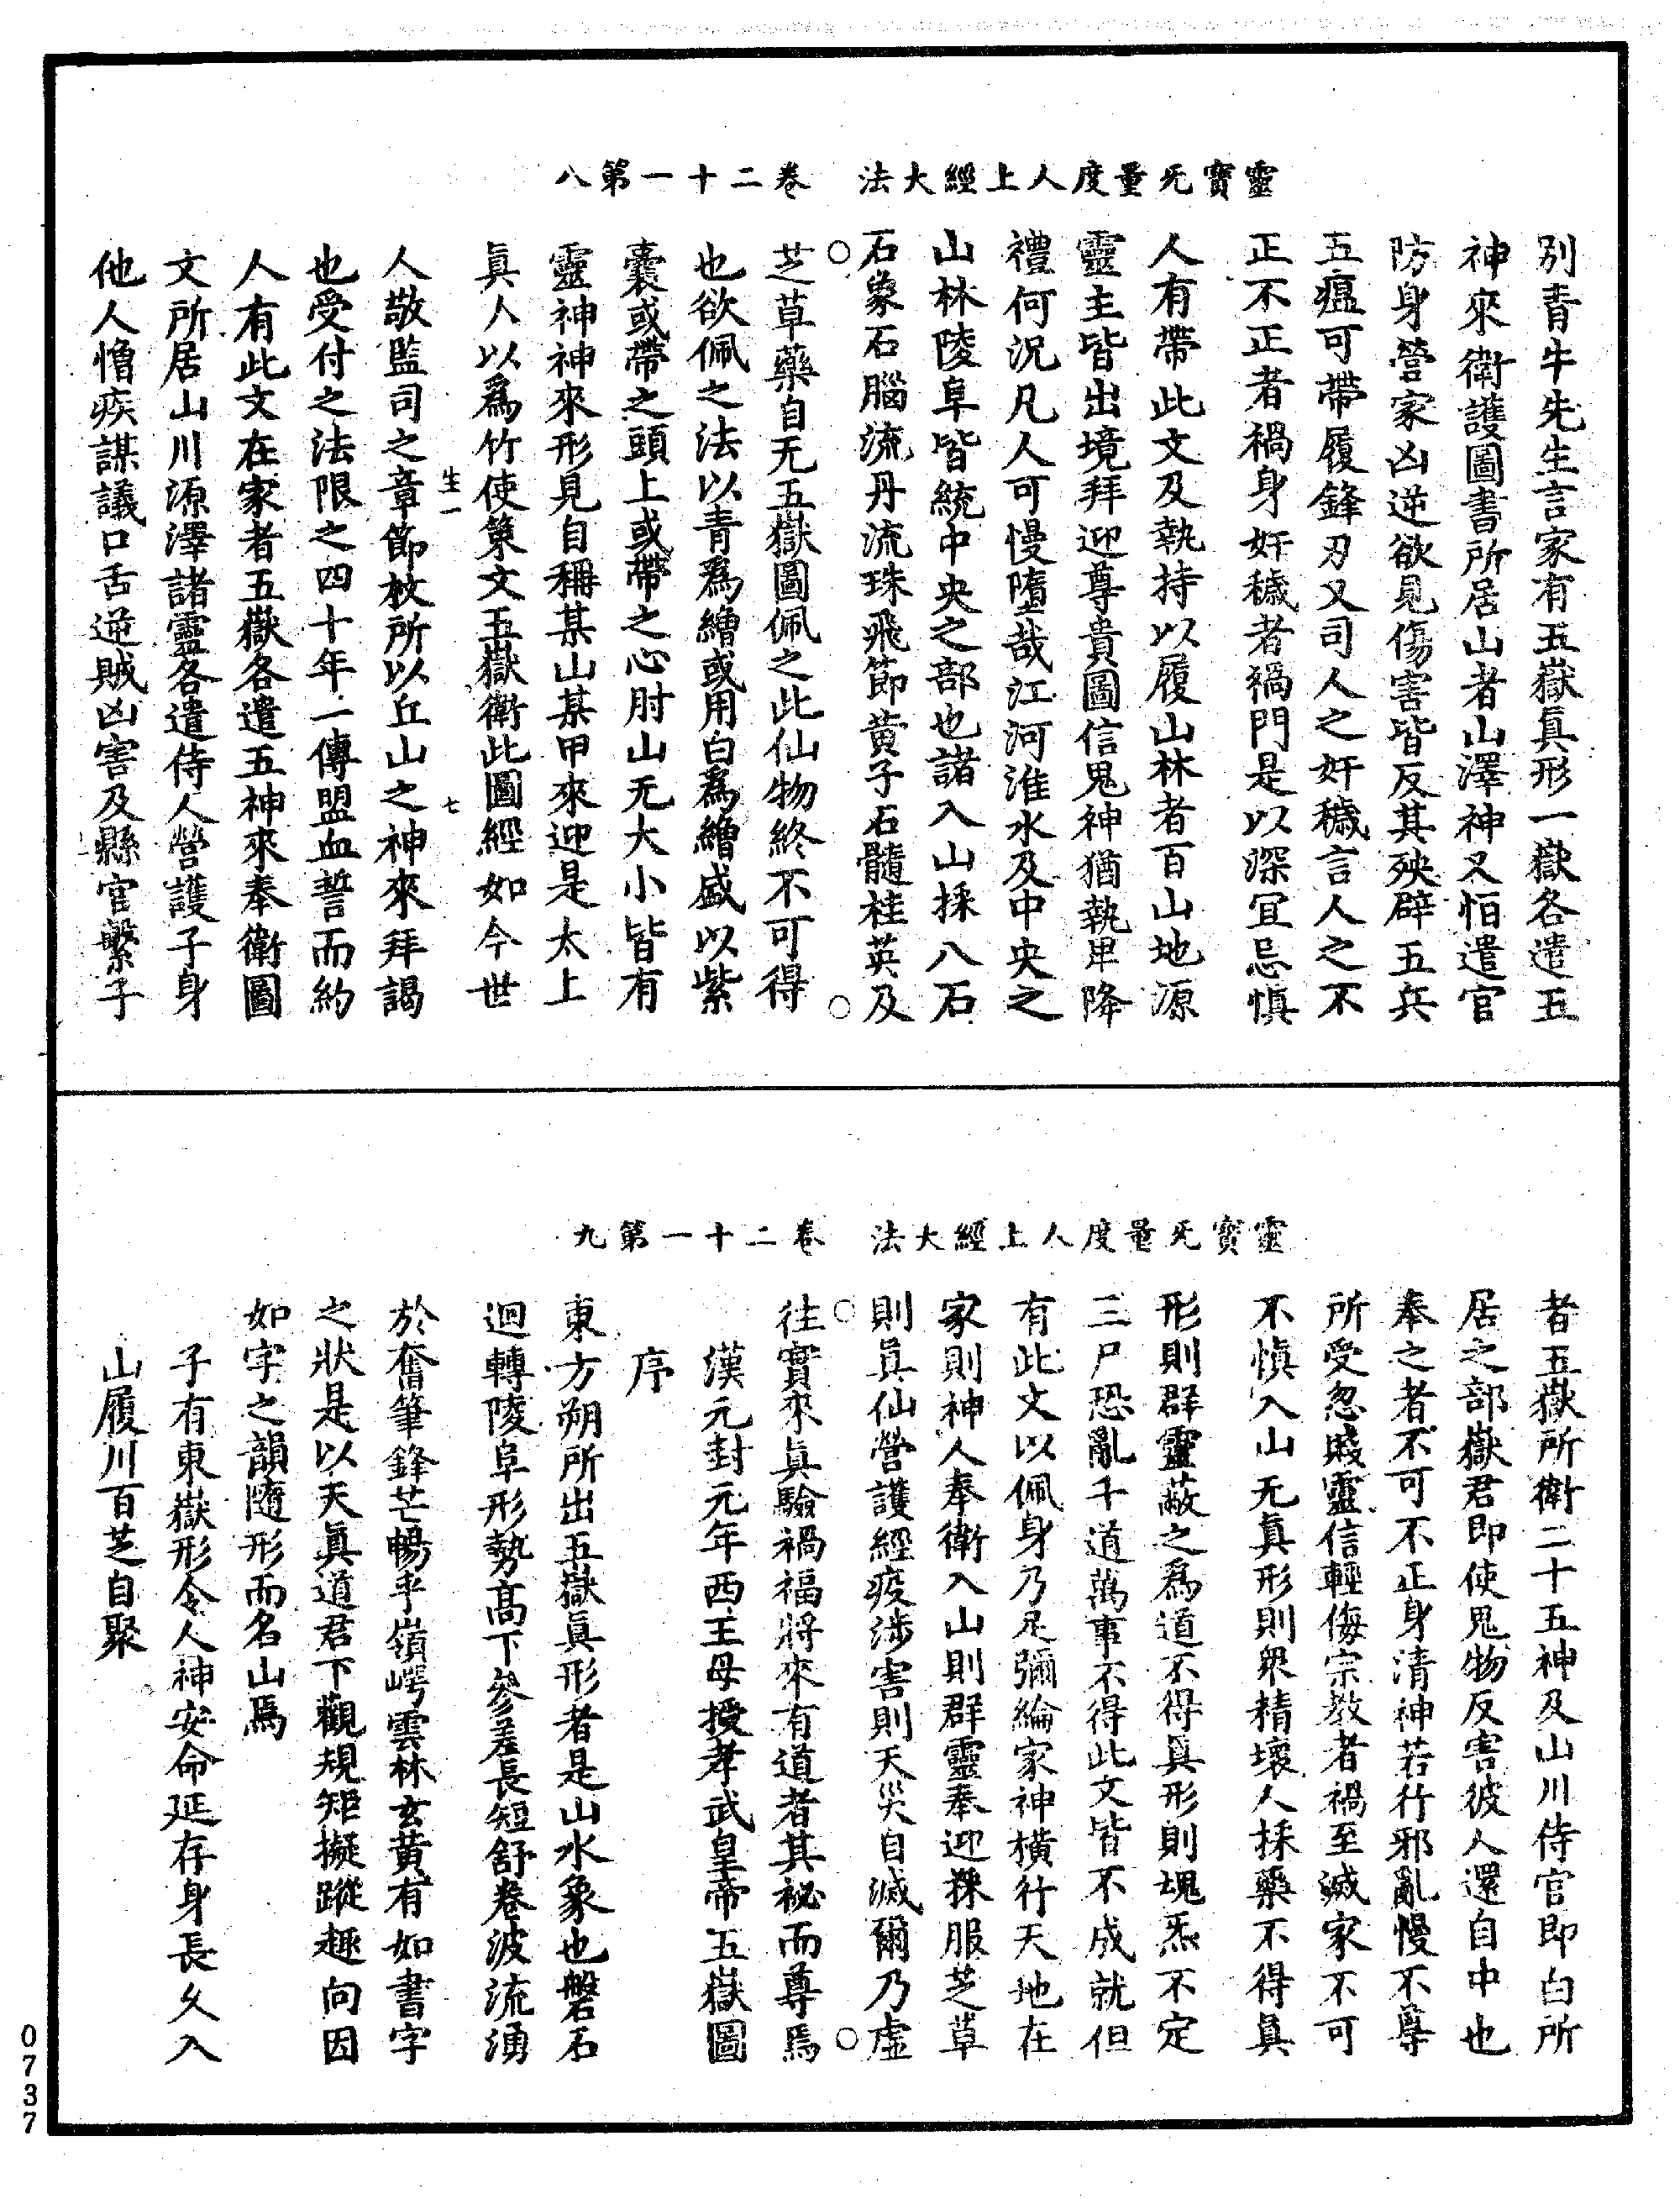 靈寶无量度人上經大法　卷二十一第八
別青牛先生言家有五嶽眞形一嶽各遣五
神來衛護圖書所居山者山澤神又怕遣官
防身營家凶逆欲見傷害皆反其殃辟五兵
五瘟可帶履鋒刃又司人之奸穢言人之不
正不正者禍身奸穢者禍門是以深冝忌慎
人有帶此文及執持以履山林者百山地源
靈主皆出境拜迎尊貴圖信鬼神猶執卑降
禮何況凡人可慢墮哉江河淮水及中央之
山林陵阜皆統中央之部也諸入山採八石
石象石腦流丹流珠飛節黃子石髓桂英及
芝草藥自无五嶽圖佩之此仙物終不可得
也欲佩之法以青爲繒或用白爲繒盛以紫
囊或帶之頭上或帶之心肘山无大小皆有
靈神神來形見自稱某山某甲來迎是太上
眞人以爲竹使策文五嶽衛此圖經如今世
生一　七
人敬監司之章節枚所以丘山之神來拜謁
也受付之法限之四十年一傳盟血誓而約
人有此文在家者五嶽各遣五神來奉衛圖
文所居山川源澤諸靈各遣侍人營護子身
他人憎疾謀議口舌逆賊凶害及縣官繫子
靈寶无量度人上經大法　卷二十一第九
者五嶽所衛二十五神及山川侍官即白所
居之部嶽君即使鬼物反害彼人還自中也
奉之者不可不正身清神若行邪亂慢不尊
所受忽戲靈信輕侮宗教者禍至滅家不可
不慎入山无眞形則衆精壞人採藥不得眞
形則群靈蔽之爲道不得眞形則塊炁不定
三尸恐亂千道萬事不得此文皆不成就但
有此文以佩身乃足彌綸家神橫行天地在
家則神人奉衛入山則群靈奉迎採服芝草
則眞仙營護經疫涉害則天災自滅爾乃虛
往實來眞驗禍福將來有道者其祕而尊焉
漢元封元年西王母授孝武皇帝五嶽圖
序
東方朔所出五嶽眞形者是山水象也磐石
迴轉陵阜形勢高下參差長短舒卷波流湧
於奮筆鋒芒暢乎嶺崿雲林玄黃有如書字
之狀是以天眞道君下觀規矩擬蹤趣向因
如字之韻隨形而名山焉
子有東嶽形令人神安命延存身長久入
山履川百芝自聚
0737